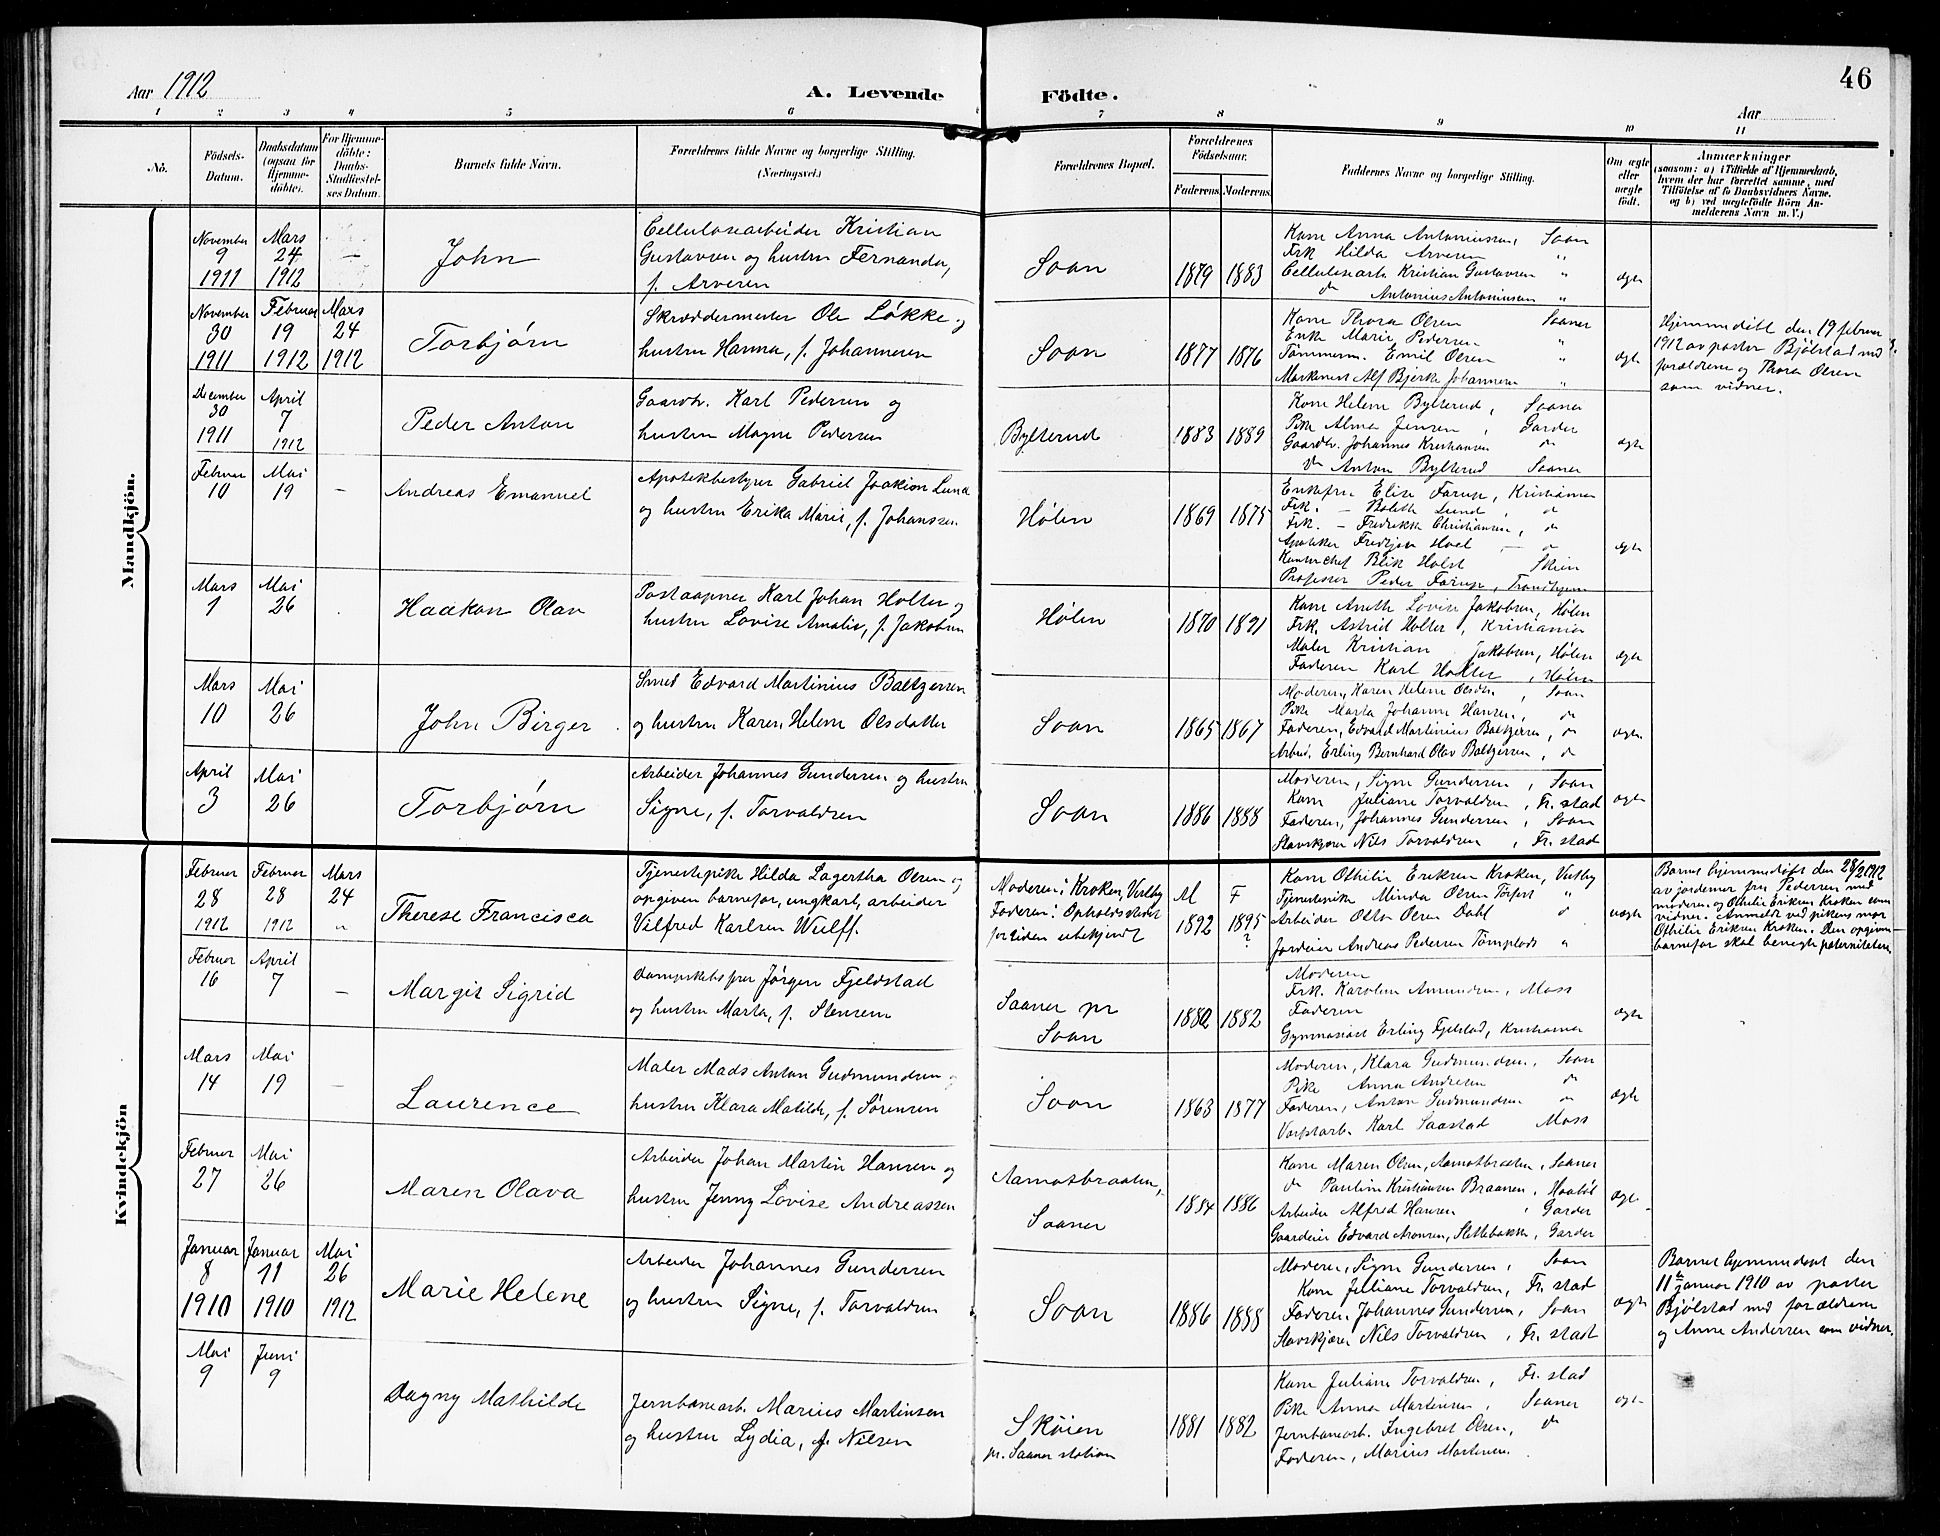 46
Aar 1912
A. Levende Födte.
Aar
1 2 3 4 5 6 7 8 9 10 11
No.
Födsels-Datum.
Daabsdatum (ogsaa för Hjemmedöbte).
For Hjemmedöbte: Daabs-Stadfæstelses Datum.
Barnets fulde Navn.
Forældrenes fulde Navne og borgerlige Stilling.
(Næringsvei.)
Forældrenes Bopæl.
Forældrenes Födselsaar.
Faderens Moderens
Faddernes Navne og borgerlige Stilling.
Om ægte eller uægte födt.
Anmærkninger
(saasom: a) i Tilfælde af Hjemmedaab,
hvem der har forrettet samme, med
Tilföielse af to Daabsvidners Navne.
og b) ved uægtefödte Börn An-
melderens Navn m. V.)
Mandkjön.
November 9 1911
Mars 24 1912
—
John
Cellulosearbeider Kristian
Gustavsen og hustru Fernanda,
f. Arvesen
Soon
1879 1883
Kone Anna Antoniussen, Soon
Frk Hilda Arvesen "
Cellulosearb Kristian Gustavsen "
do Antonius Antoniussen "
ægte
November 30 1911
Februar 19 1912
Mars 24 1912
Torbjørn
Skræddermester Ole Løkke og
hustru Hanna, f. Johannesen
Soon
1877 1876
Kone Thora Olsen Saaner
Enke Marie Pedersen "
Tømmerm. Emil Olsen "
Alf Bjerke Johannesen "
ægte
Hjemmedøbt den 19 februar
1912 av pastor Bjølstad med
forældrene og Thora Olsen
som vidner.
December 30 1911
April 7 1912
Peder Anton
Gaardbr. Karl Pedersen og
hustru Magne Pedersen
Bylterud
1883 1889
Kone Helene Bylterud, Saaner
Pike Alma Jensen, Garder
Gaardbr. Johannes Kristiansen do
do Anton Bylterud Saaner
ægte
Februar 10
Mai 19
—
Andreas Emanuel
Apotekbestyrer Gabriel Joakim Lund
og hustru Erika Marie, f. Johanssen
Hølen
1869 1875
Enkefru Elise Farup, Kristiania
Frk. — Bolette Lund, do
Frk. — Fredrikke Christiansen, do
Apoteker Fredrik Hoel — do
Kontorchef Blik Holst Skien
Professor Peder Farup, Trondhjem
ægte
Mars 1
Mai 26
Haakon Olav
Postaapner Karl Johan Holter og
hustru Lovise Amalie, f. Jakobsen
Hølen
1870 1871
Kone Anette Lovise Jakobsen, Hølen
Frk. Astrid Holter, Kristiania
Maler Kristian Jakobsen, Hølen
Faderen Karl Holter, Hølen
ægte
Mars 10
Mai 26
John Birger
Smed Edvard Martinius Baltzersen
og hustru Karen Helene Olsdatter
Soon
1865 1867
Moderen, Karen Helene Olsdtr, Soon
Pike Marta Johanne Hansen, do
Faderen, Edvard Martinius Baltzersen, do
Arbeid. Erling Bernhard Olav Baltzersen, do
ægte
April 3
Mai 26
Torbjørn
Arbeider Johannes Gundersen og hustru
Signe, f. Torvaldsen
Soon
1886 1888
Moderen, Signe Gundersen, Soon
Kone Juliane Torvaldsen, Fr. stad
Faderen, Johannes Gundersen, Soon
Stavskjærer Nils Torvaldsen, Fr. stad
ægte
Kvindekjön
Februar 28 1912
Februar 28 1912
Mars 24 "
Therese Francisca
Tjenestepike Hilda Lagertha Olsen og
opgiven barnefar, ungkarl, arbeider
Vilfred Karlsen Wulff.
Moderen: Kroken, Vestby
Faderen: Opholdsstedet
for tiden ubekjendt
M 1892
F 1895 ?
Kone Othilie Eriksen Kroken, Vestby
Tjenestepike Minda Olsen "
Arbeider Otto Olsen Dahl do
Jordeier Andreas Pedersen Tomplads "
uægte
Barnet hjemmedøbt den 28/2 1912
av jordemor fru Pedersen med
moderen og Othilie Eriksen Kroken som
vidner. Anmeldt ved pikens mor
Othilie Eriksen Kroken. Den opgivne
barnefar skal benegte paterniteten
Februar 16
April 7
—
Margit Sigrid
Dampskibsfører Jørgen Fjeldstad
og hustru Marta, f. Stensen
Saaner pr
Soon
1880 1882
Moderen
Frk. Karoline Amundsen, Moss
Faderen
Gymnasiast Erling Fjelstad, Kristiania
ægte
Mars 14
Mai 19
—
Laurence
Maler Mads Anton Gudmundsen og
hustru Klara Matilde, f. Sørensen
Soon
1863 1877
Moderen, Klara Gudmundsen, Soon
Pike Anna Andresen do
Faderen, Anton Gudmundsen do
Karl Saastad Moss
ægte
Februar 27
Mai 26
Maren Olava
Arbeider Johan Martin Hansen og
hustru Jenny Lovise Andreassen
Aamotbraaten,
Saaner
1884 1886
Kone Maren Olsen, Aamotbraaten, Saaner
do Pauline Kristiansen Braanen, Haabøl
Arbeider Alfred Hansen, Garder
Gaardeier Edvard Aronsen, Slettebakke, Garder
ægte
Januar 8 1910
Januar 11 1910
Mai 26 1912
Marie Helene
Arbeider Johannes Gundersen
og hustru Signe, f. Torvaldsen
Soon
1886 1888
Moderen, Signe Gundersen, Soon
Kone Juliane Torvaldsen, Fr. stad
Faderen, Johannes Gundersen, Soon
Stavskjærer Nils Torvaldsen, Fr. stad
ægte
Barnet hjemmedøbt den
11te januar 1910 av pastor
Bjølstad med forældrene
og Anne Andersen som vidner.
Mai 9
Juni 9
Dagny Mathilde
Jernbanearb. Marius Martinsen
og hustru Lydia, f. Nilsen
Skøien
pr. Saaner station
1881 1882
Kone Juliane Torvaldsen, Fr. stad
Pike Anna Martinsen, Saaner
Jernbanearb. Ingebret Olsen, do
Faderen, Marius Martinsen.
ægte